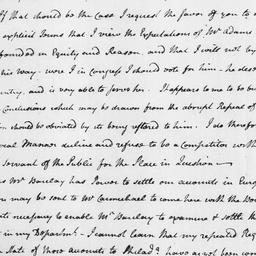 If that should be the Case I request the favor of you to
explicit Terms that I view the Expectations of Mr Adams
founded in Equity and Reason and that I will not by
his way. were I in Congress I should vote for him – he dese
untry, and is very able to serve her. It appears to me to be bu
Conclusions which may be drawn from the abrupt Repeal of
on should be obviated by its being restored to him. I do therefor
ivocal Manner decline and refuse to be a Competitor with
Servant of the Public for the Place in Question
as Mr Barclay has Power to settle our accounts in Euro
ou may be sent to Mr Carmichael to come here with the Boo
ents necessary to enable Mr Barclay to examine & settle th
in my Departmt. – I cannot learn that my repeated Requ
State of those accounts to Philada have as yet been com